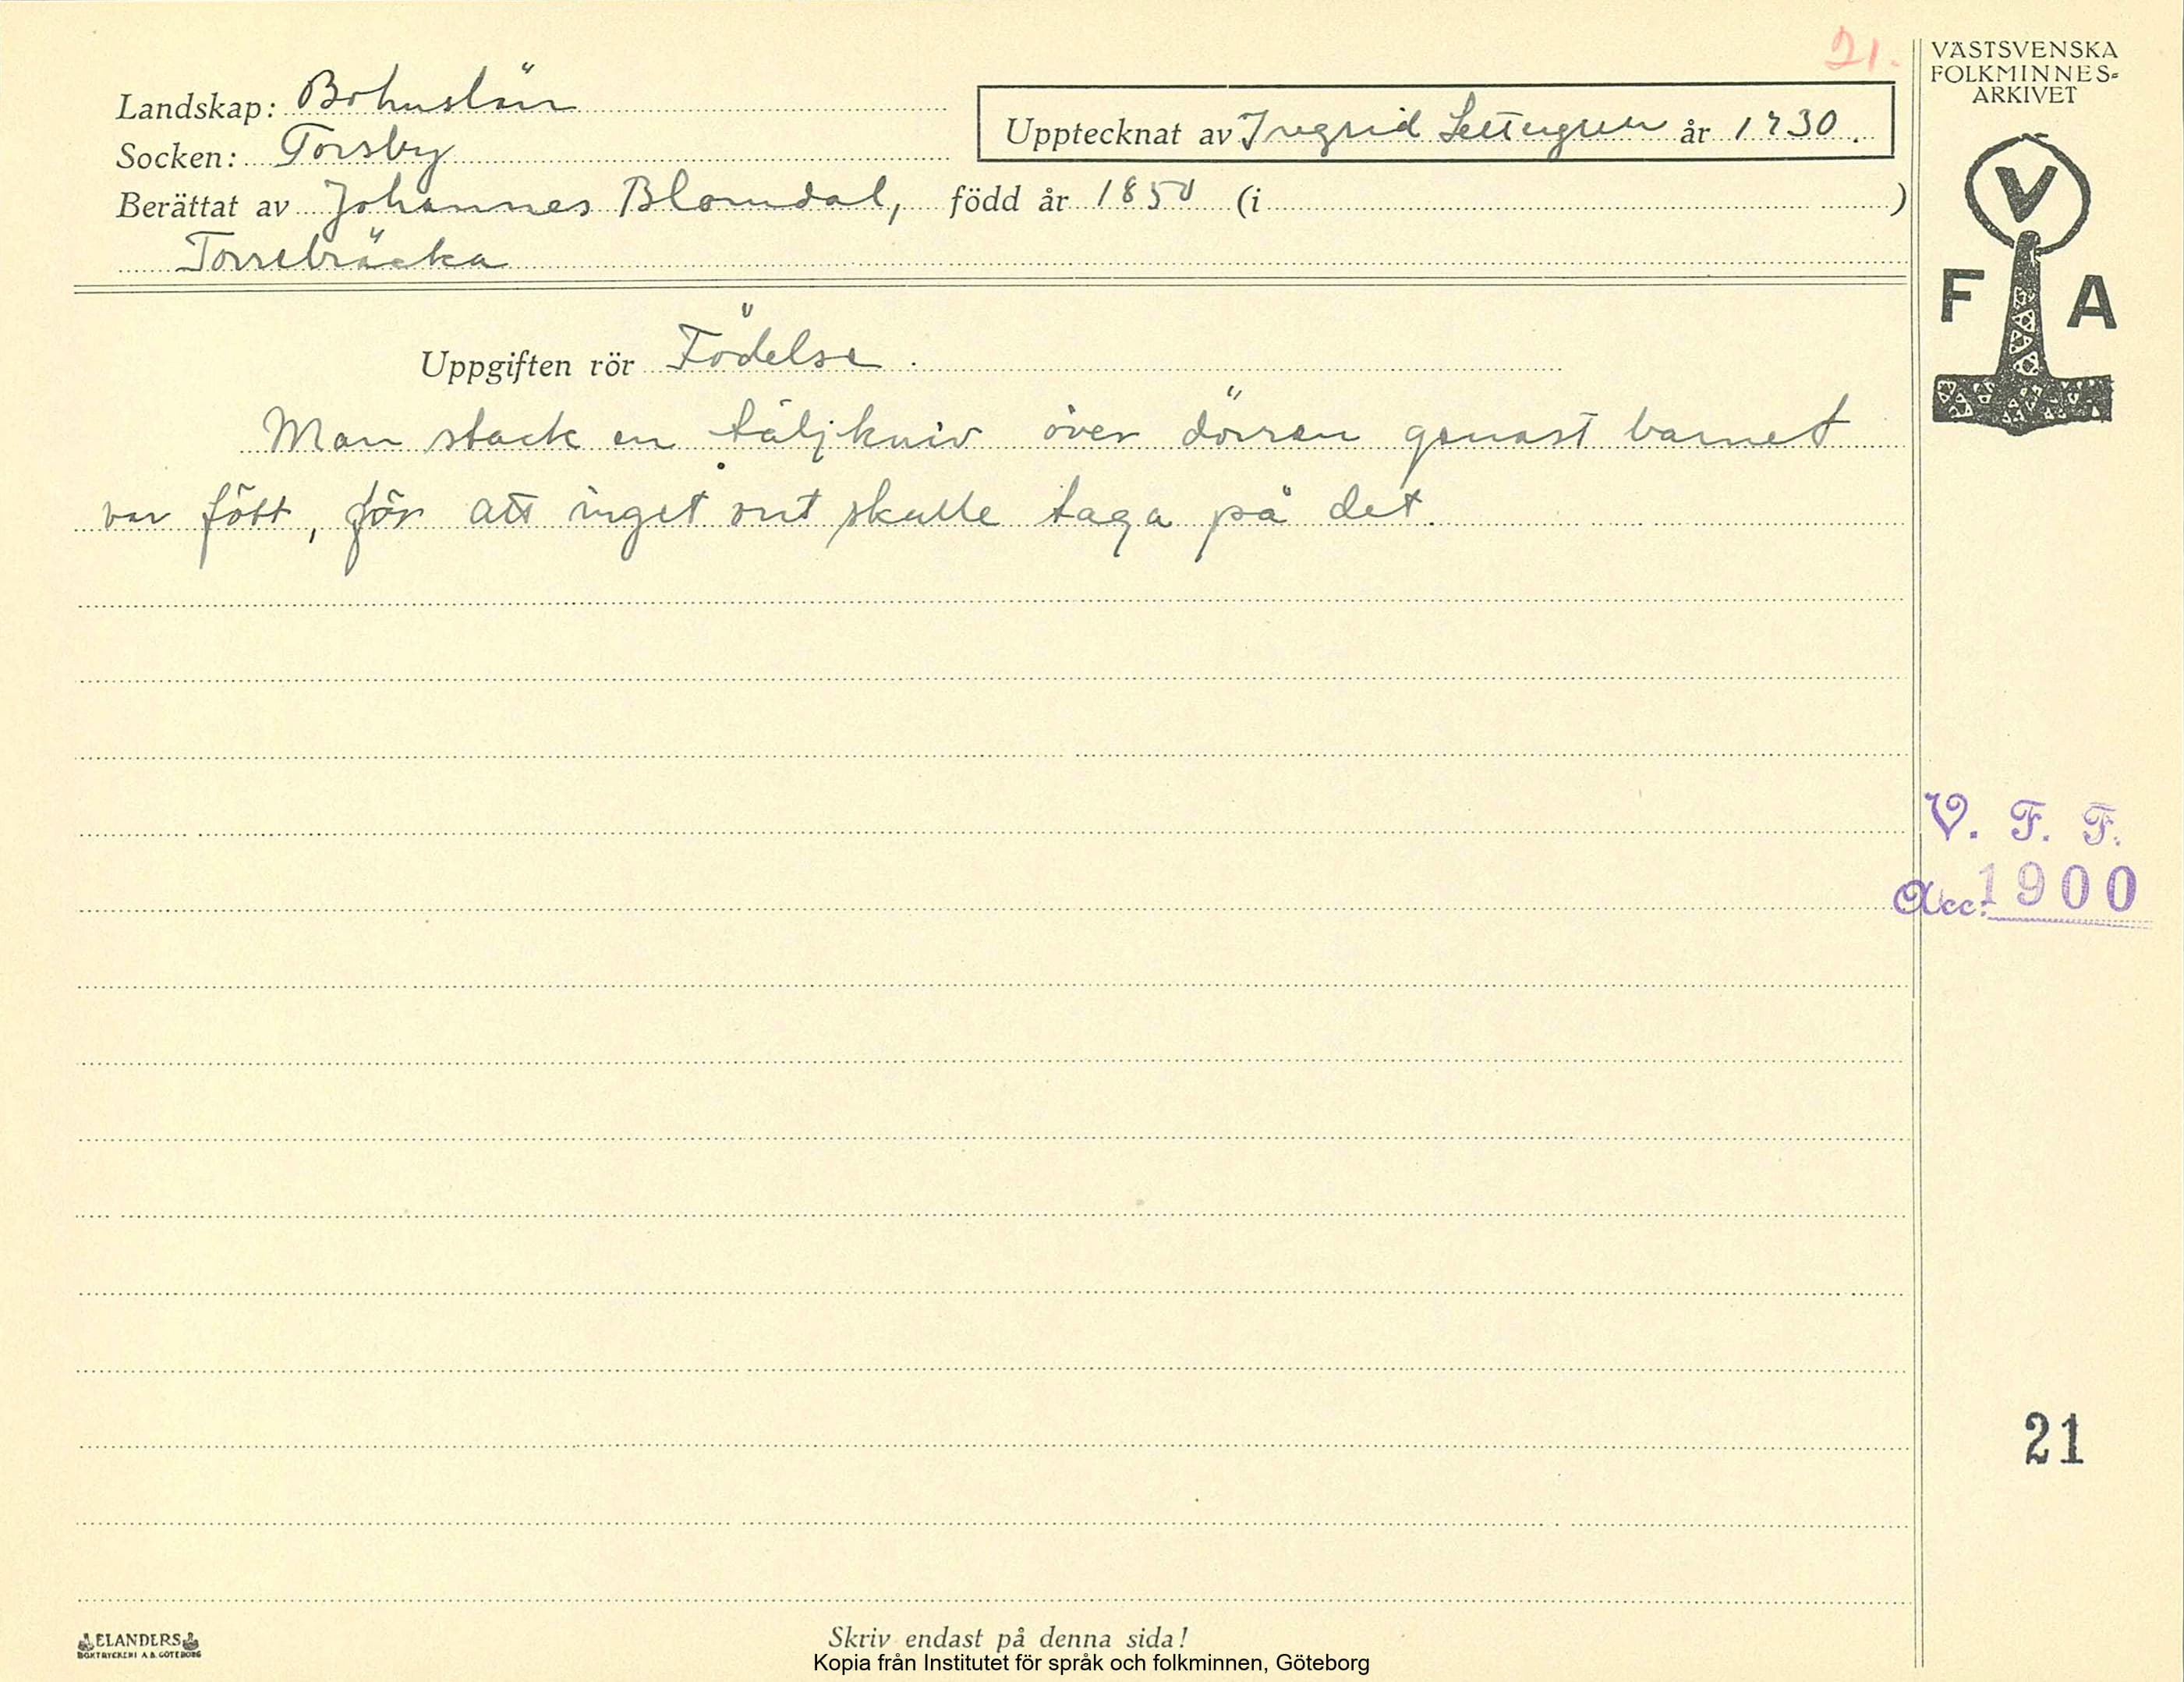 21.
Landskap: Bohuslän
Upptecknat av Ingrid Settergren år 1930.
Socken: Torsby
Berättat av Johannes Blomdal, född år 1850 (i )
Torrebräcka
Uppgiften rör Födelse.
Man stack en täljkniv över dörren genast barnet
var fött, för att inget ont skulle taga på det.
VÄSTSVENSKA
FOLKMINNES-
ARKIVET
V
F A
V. F. F.
Acc. 1900
21
ELANDERS
BOKTRYCKERI A.B. GÖTEBORG
Skriv endast på denna sida!
Kopia från Institutet för språk och folkminnen, Göteborg